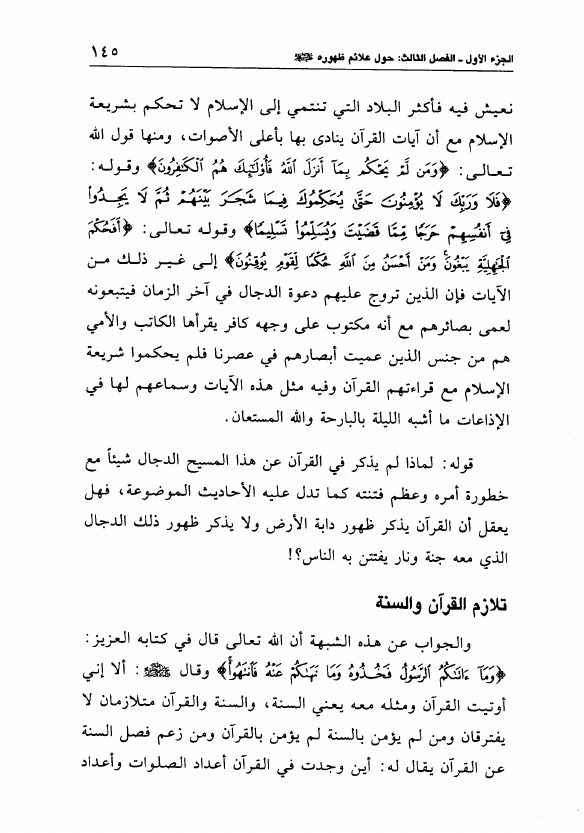 الجزء الأول - الفصل الثالث: حول علائم ظهوره ﷺ
١٤٥
نعيش فيه فأكثر البلاد التي تنتمي إلى الإسلام لا تحكم بشريعة
الإسلام مع أن آيات القرآن ينادى بها بأعلى الأصوات، ومنها قول الله
تعالى: ﴿وَمَن لَّمْ يَحْكُم بِمَآ أَنزَلَ ٱللَّهُ فَأُوْلَٰٓئِكَ هُمُ ٱلْكَٰفِرُونَ﴾ وقوله:
﴿فَلَا وَرَبِّكَ لَا يُؤْمِنُونَ حَتَّىٰ يُحَكِّمُوكَ فِيمَا شَجَرَ بَيْنَهُمْ ثُمَّ لَا يَجِدُوا۟
فِىٓ أَنفُسِهِمْ حَرَجًا مِّمَّا قَضَيْتَ وَيُسَلِّمُوا۟ تَسْلِيمًا﴾ وقوله تعالى: ﴿أَفَحُكْمَ
ٱلْجَٰهِلِيَّةِ يَبْغُونَ ۚ وَمَنْ أَحْسَنُ مِنَ ٱللَّهِ حُكْمًا لِّقَوْمٍ يُوقِنُونَ﴾ إلى غير ذلك من
الآيات فإن الذين تروج عليهم دعوة الدجال في آخر الزمان فيتبعونه
لعمى بصائرهم مع أنه مكتوب على وجهه كافر يقرأها الكاتب والأمي
هم من جنس الذين عميت أبصارهم في عصرنا فلم يحكموا شريعة
الإسلام مع قراءتهم القرآن وفيه مثل هذه الآيات وسماعهم لها في
الإذاعات ما أشبه الليلة بالبارحة والله المستعان.
قوله: لماذا لم يذكر في القرآن عن هذا المسيح الدجال شيئاً مع
خطورة أمره وعظم فتنته كما تدل عليه الأحاديث الموضوعة، فهل
يعقل أن القرآن يذكر ظهور دابة الأرض ولا يذكر ظهور ذلك الدجال
الذي معه جنة ونار يفتتن به الناس؟!
تلازم القرآن والسنة
والجواب عن هذه الشبهة أن الله تعالى قال في كتابه العزيز:
﴿وَمَآ ءَاتَىٰكُمُ ٱلرَّسُولُ فَخُذُوهُ وَمَا نَهَىٰكُمْ عَنْهُ فَٱنتَهُوا۟ ۚ﴾ وقال ﷺ: ألا إني
أوتيت القرآن ومثله معه يعني السنة، والسنة والقرآن متلازمان لا
يفترقان ومن لم يؤمن بالسنة لم يؤمن بالقرآن ومن زعم فصل السنة
عن القرآن يقال له: أين وجدت في القرآن أعداد الصلوات وأعداد